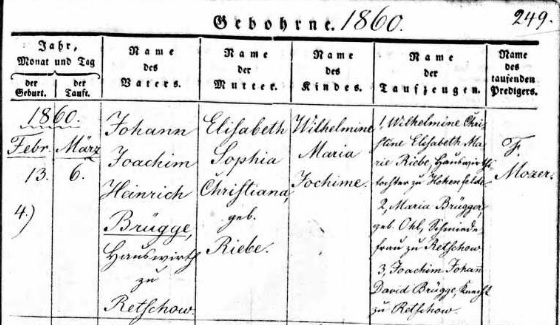 Gebohrne. 1860.
249.
Jahr,
Monat und Tag
der
Geburt.
der
Tauft.
Name
des
Vaters.
Name
der
Mutter.
Name
des
Kindes.
Name
der
Taufzeugen.
Name
des
taufenden
Predigers.
1860.
Febr.
13.
4.)
März
6.
Johann
Joachim
Heinrich
Brügge,
Hauswirth
zu
Retschow.
Elisabeth
Sophia
Christiana,
geb.
Riebe.
Wilhelmine
Maria
Jochime.
1, Wilhelmine Chri-
stine Elisabeth Ma-
rie Riebe, Hauswirths-
tochter zu Hohenfelde
2, Maria Brügge,
geb. Ohl, Schmiede-
frau zu Retschow
3, Joachim Johan
David Brügge, Knecht
zu Retschow.
F.
Mozer.